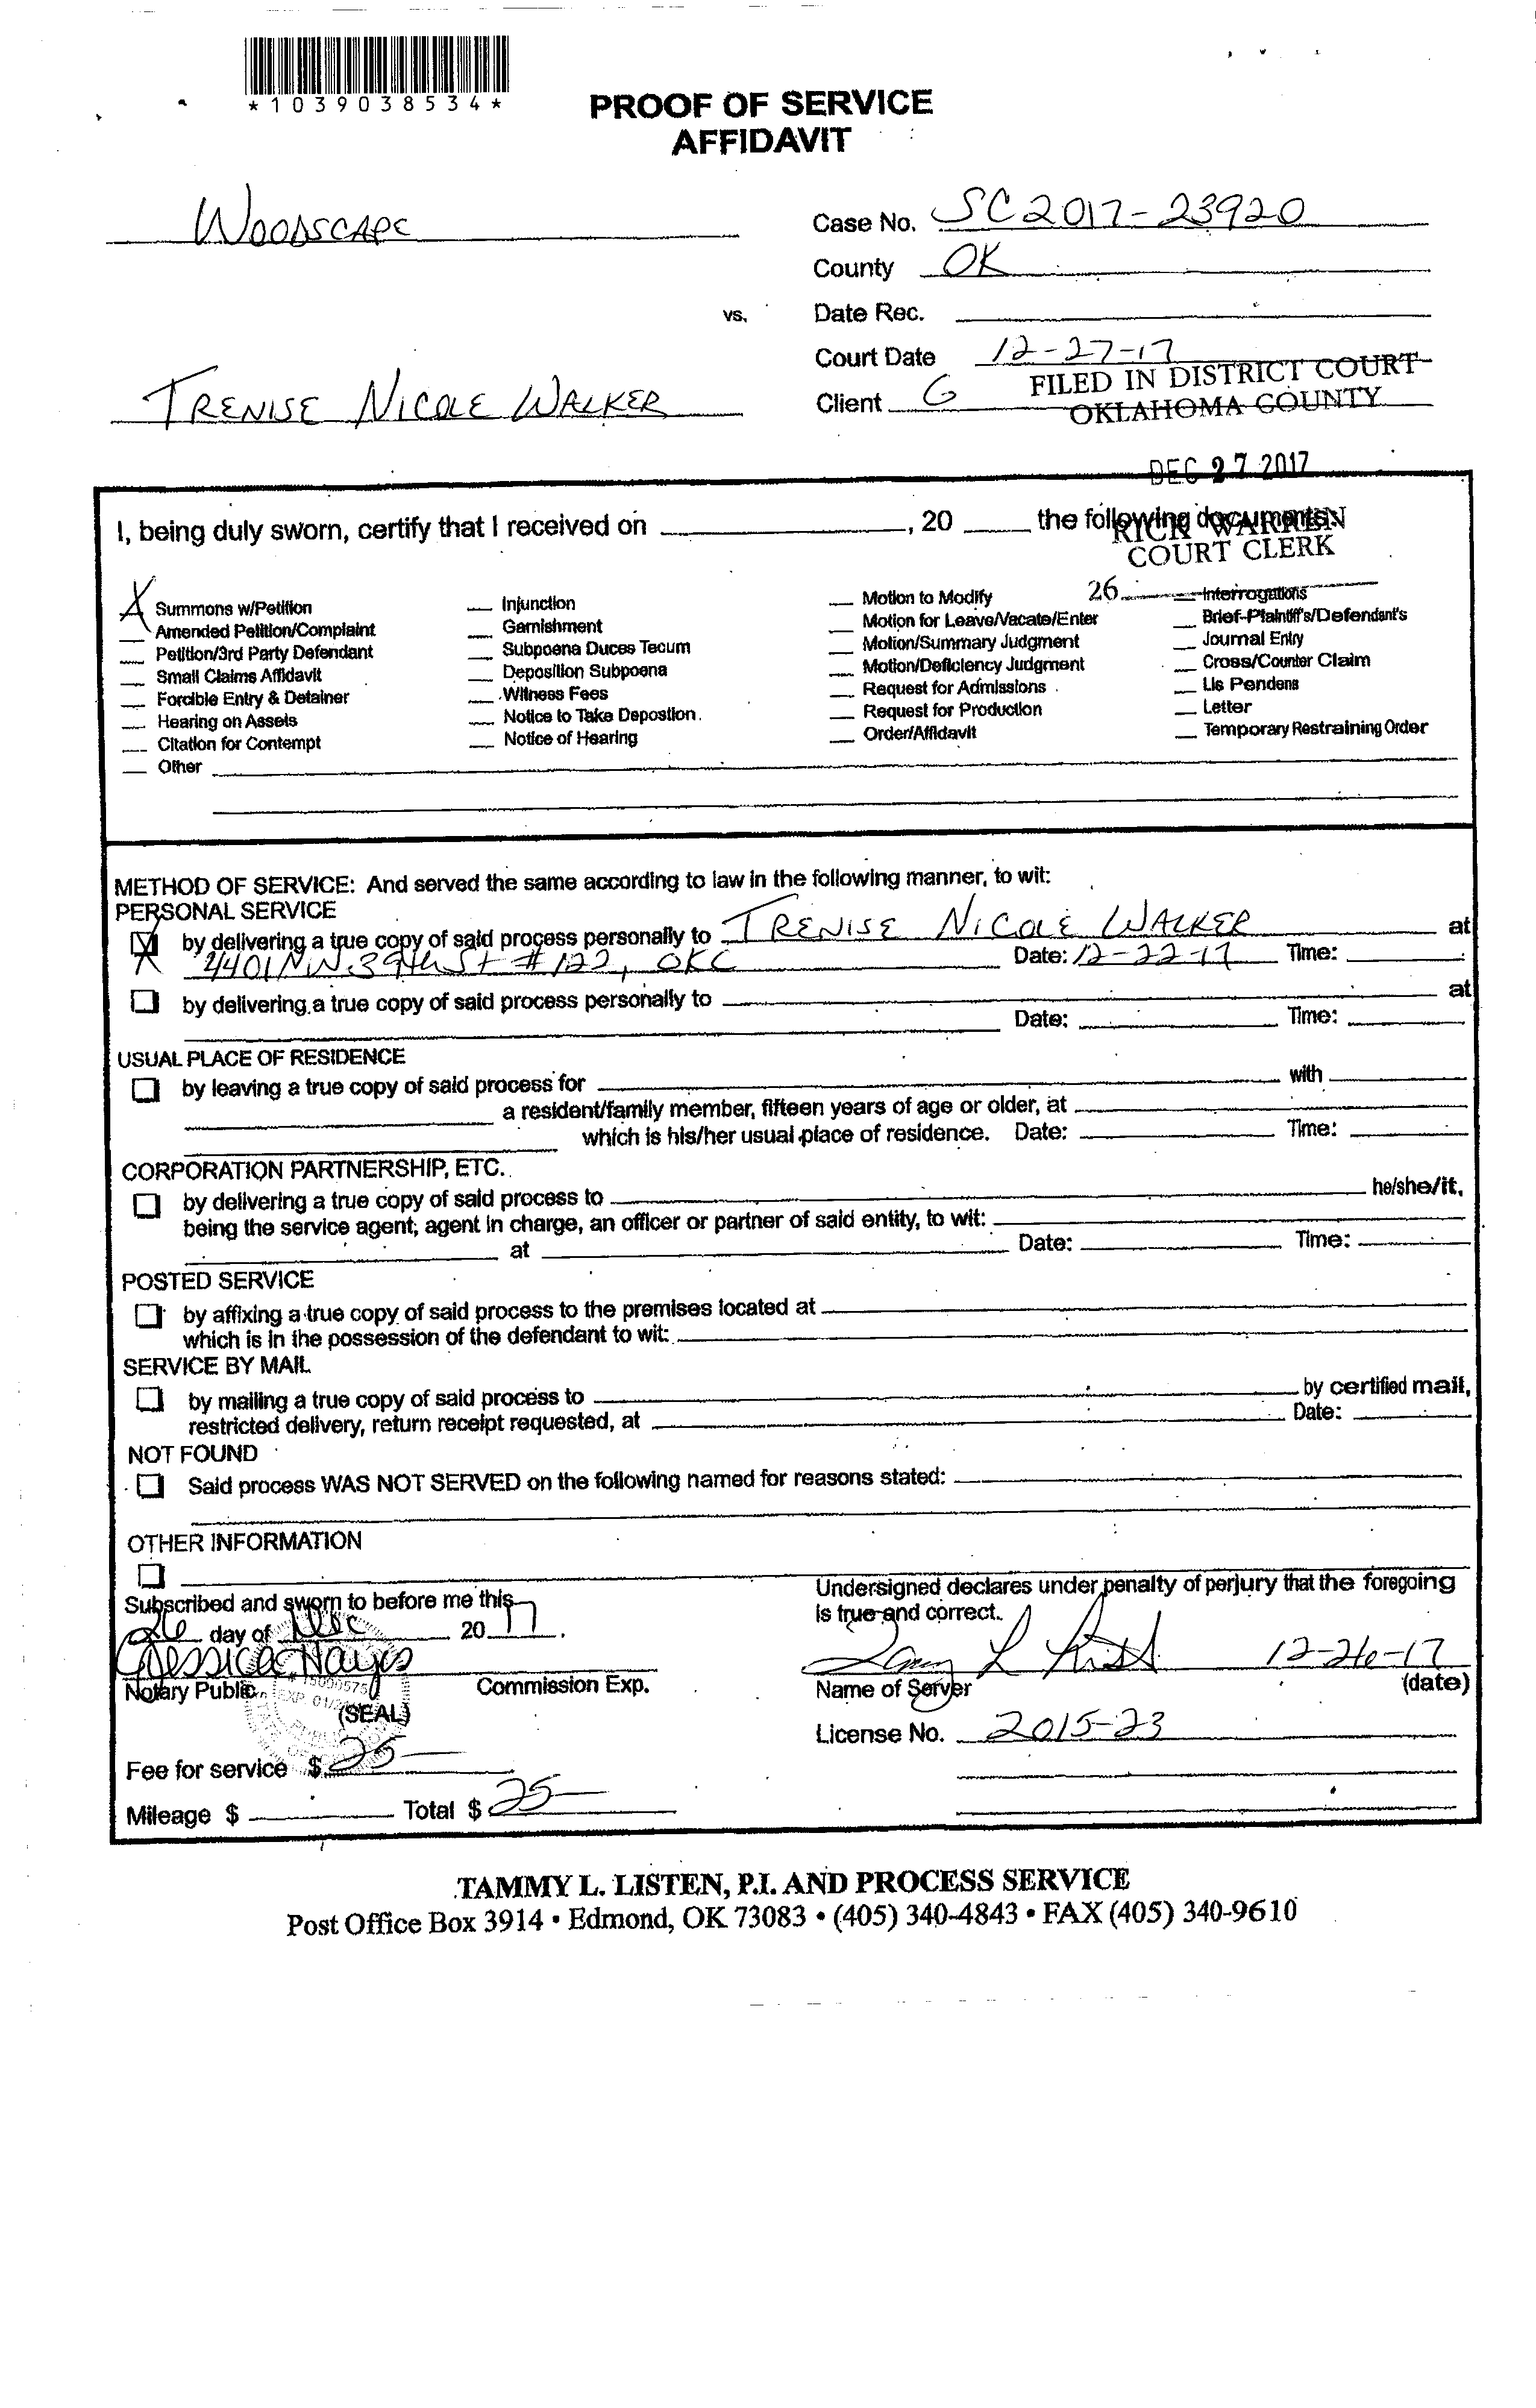 *1039038534*
PROOF OF SERVICE
AFFIDAVIT
WOODSCAPE
Case No. SC2017-23920
County OK
vs.
Date Rec.
Court Date 12-27-17
TRENISE NICOLE WALKER
Client G
FILED IN DISTRICT COURT
OKLAHOMA COUNTY
DEC 27 2017
I, being duly sworn, certify that I received on , 20 the following documents:
RICK WARREN
COURT CLERK
26
X Summons w/Petition
Amended Petition/Complaint
Petition/3rd Party Defendant
Small Claims Affidavit
Forcible Entry & Detainer
Hearing on Assets
Citation for Contempt
Other
Injunction
Garnishment
Subpoena Duces Tecum
Deposition Subpoena
Witness Fees
Notice to Take Depostion
Notice of Hearing
Motion to Modify
Motion for Leave/Vacate/Enter
Motion/Summary Judgment
Motion/Deficiency Judgment
Request for Admissions
Request for Production
Order/Affidavit
Interrogations
Brief-Plaintiff's/Defendant's
Journal Entry
Cross/Counter Claim
Lis Pendens
Letter
Temporary Restraining Order
METHOD OF SERVICE: And served the same according to law in the following manner, to wit:
PERSONAL SERVICE
X by delivering a true copy of said process personally to TRENISE NICOLE WALKER at
4401 NW 39th St #122, OKC Date: 12-22-17 Time:
by delivering a true copy of said process personally to at
Date: Time:
USUAL PLACE OF RESIDENCE
by leaving a true copy of said process for with
a resident/family member, fifteen years of age or older, at
which is his/her usual place of residence. Date: Time:
CORPORATION PARTNERSHIP, ETC.
by delivering a true copy of said process to he/she/it,
being the service agent; agent in charge, an officer or partner of said entity, to wit:
at Date: Time:
POSTED SERVICE
by affixing a true copy of said process to the premises located at
which is in the possession of the defendant to wit:
SERVICE BY MAIL
by mailing a true copy of said process to by certified mail,
restricted delivery, return receipt requested, at Date:
NOT FOUND
Said process WAS NOT SERVED on the following named for reasons stated:
OTHER INFORMATION
Subscribed and sworn to before me this
26 day of Dec 2017.
Jessica Hayes
Notary Public Commission Exp.
(SEAL)
Fee for service $ 25—
Mileage $ Total $ 25—
Undersigned declares under penalty of perjury that the foregoing
is true and correct.
12-26-17
Name of Server (date)
License No. 2015-23
TAMMY L. LISTEN, P.I. AND PROCESS SERVICE
Post Office Box 3914 • Edmond, OK 73083 • (405) 340-4843 • FAX (405) 340-9610